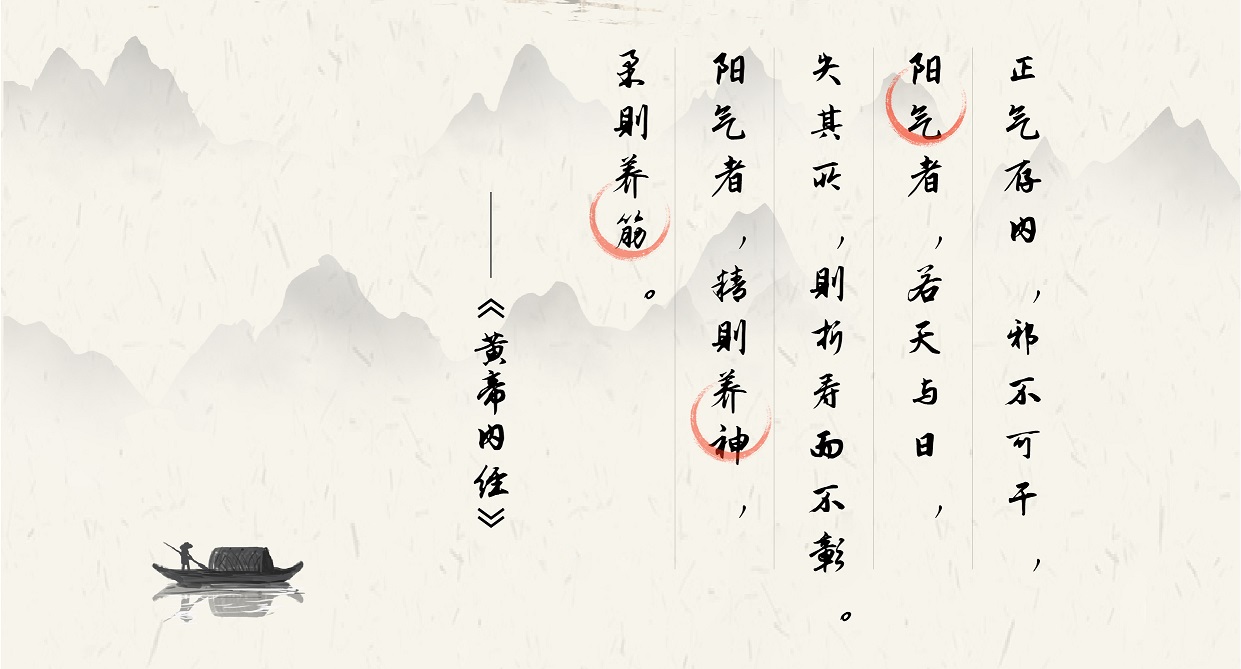 正气存内，邪不可干，
阳气者，若天与日，
失其所，則折寿而不彰。
阳气者，精則养神，
柔則养筋。
——《黄帝内经》